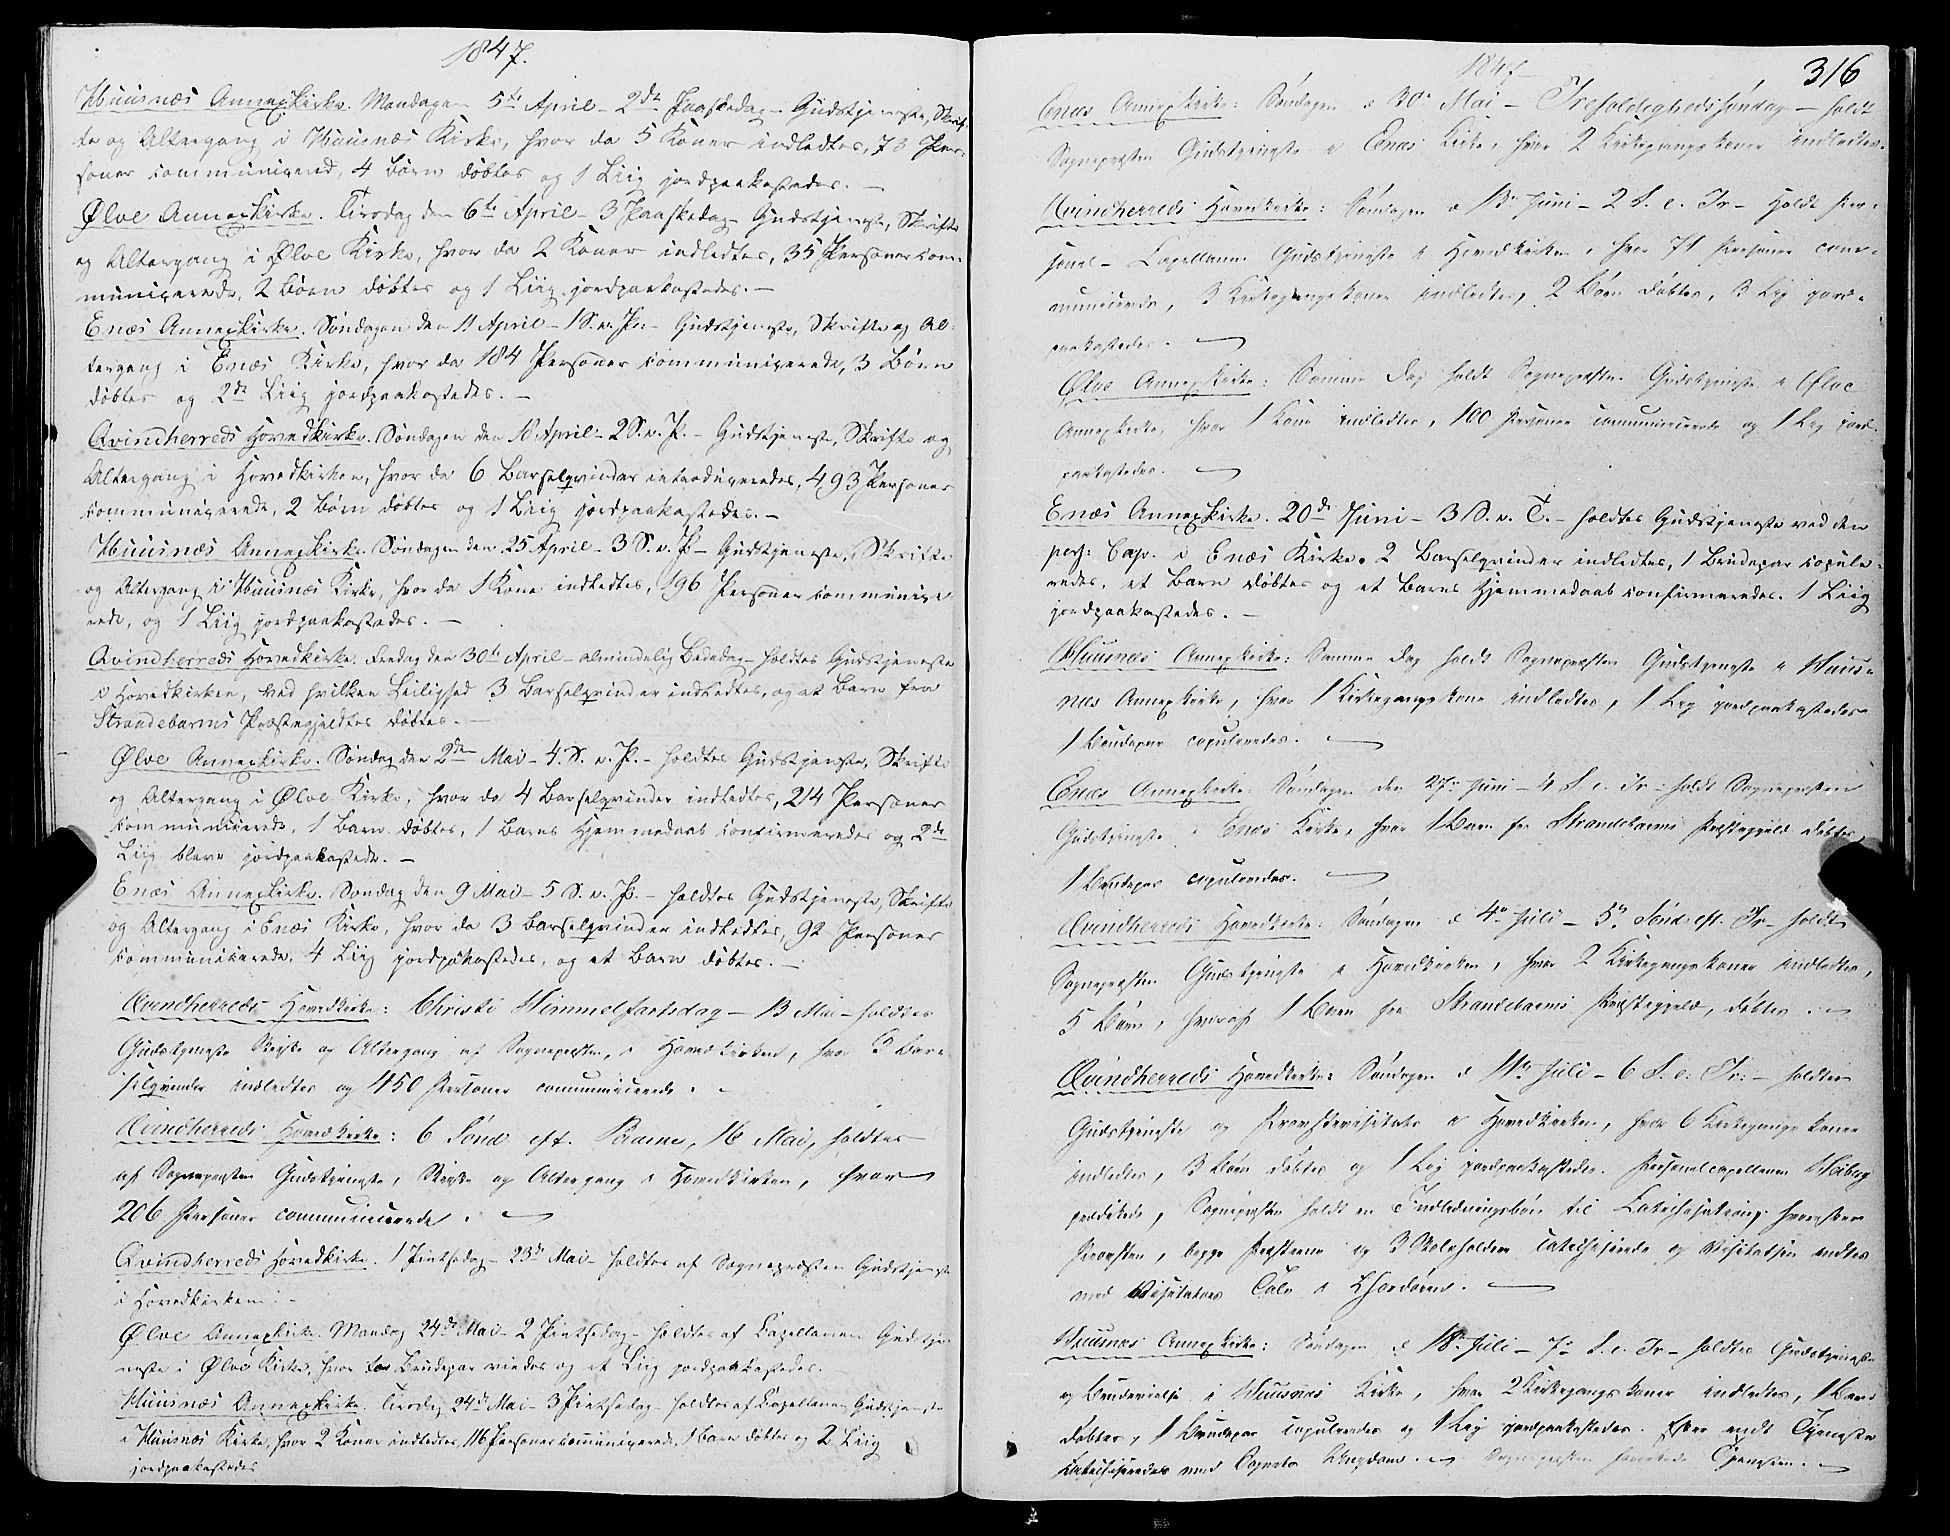 1847.
Huusnæs Annexkirke. Mandagen 5te April – 2de Paaskedag – Gudstjeneste, Skrif-
te og Altergang i Huusnæs Kirke, hvor da 5 Koner indledtes, 73 Per-
soner communicered, 4 Børn døbtes og 1 Liig jordpaakastedes. –
Ølve Annexkirke. Tirsdag den 6te April – 3 Paaskedag – Gudstjeneste, Skrifte
og Altergang i Ølve Kirke, hvor da 2 Koner indledtes, 35 Personer com-
municerede, 2 Børn døbtes og 1 Liig jordpaakastedes. –
Enæs Annexkirke. Søndagen den 11 April – 1 S. e. P. – Gudstjeneste, Skrifte og Al-
tergang i Enæs Kirke, hvor da 184 Personer communicerede, 3 Børn
døbtes og 2de Liig jordpaakastedes. –
Qvindherreds Hovedkirke. Søndagen den 18 April – 2 S. e. P. – Gudstjeneste, Skrifte og
Altergang i Hovedkirken, hvor da 6 Barselqvinder introduceredes, 493 Personer
communicerede, 2 Børn døbtes og 1 Liig jordpaakastedes. –
Huusnæs Annexkirke. Søndagen den 25 April – 3 S. e. P. – Gudstjeneste, Skrifte
og Altergang i Huusnæs Kirke, hvor da 1 Kone indledtes, 196 Personer communice-
rede, og 1 Liig jordpaakastedes. –
Qvindherreds Hovedkirke. Fredag den 30te April – almindelig Bededag – holdtes Gudstjeneste
i Hovedkirken, ved hvilken Leilighed 3 Barselqvinder indledtes, og et Barn fra
Strandebarms Præstegjeldtes døbtes. –
Ølve Annexkirke. Søndag den 2den Mai – 4. S. e. P. – holdtes Gudstjeneste, Skrifte
og Altergang i Ølve Kirke, hvor da 4 Barselqvinder indledtes, 214 Personer
communicerede, 1 Barn døbtes, 1 Barns Hjemmedaab confirmeredes og 2de
Liig bleve jordpaakastede. –
Enæs Annexkirke. Søndag den 9 Mai – 5 S. e. P. – holdtes Gudstjeneste, Skrifte
og Altergang i Enæs Kirke, hvor da 3 Barselqvinder indledtes, 92 Personer
communicerede, 4 Liig jordpåkastedes, og et Barn døbtes. –
Qvindherreds Hovedkirke: Christi Himmelfartsdag – 13 Mai – holdtes
Gudstjeneste Skrifte og Altergang af Sognepræsten, i Hovedkirken, hvor 3 Bar-
selqvinder indledtes og 450 Personer communicerede. –
Qvindherreds Hovedkirke: 6 Sønd. eft. Paaske, 16 Mai, holdtes
af Sognepræsten Gudstjeneste, Skrifte og Altergang i Hovedkirken, hvor
206 Personer communicerede. –
Qvindherreds Hovedkirke. 1 Pintsedag – 23de Mai – holdtes af Sognepræsten Gudstjeneste
i Hovedkirken. –
Ølve Annexkirke. Mandag 24de Mai – 2 Pintsedag – holdtes af Capellanen Gudstje-
neste i Ølve Kirke, hvor Brudepar viedes og et Liig jordpaakastedes.
Huusnæs Annexkirke. Tirsdag 24de Mai – 3 Pintsedag – holdtes af Capellanen Gudstjeneste
i Huusnæs Kirke, hvor 2 Koner indledtes, 116 Personer communicerede, 1 Barn døbtes og 2 Liig
jordpaakastedes
1847
316
Enæs Annexkirke: Søndagen d 30te Mai – Trefoldighedssøndag – holdt
Sognepræsten Gudstjeneste i Enæs Kirke, hvor 2 Kirkegangskoner indledtes.
Qvindherreds Hovedkirke: Søndagen d 13de Juni – 2 S. e. Tr – holdt per-
sonel-Capellanen Gudstjeneste i Hovedkirken, hvor 71 Personer com-
municerede, 3 Kirkegangskoner indledtes, 2 Børn døbtes, 3 Lig jord-
paakastedes. –
Ølve Annexkirke: Samme Dag holdt Sognepræsten Gudstjeneste i Ølve
Annexkirke, hvor 1 Kone indledtes, 100 Personer communicerede og 1 Lig jord-
paakastedes. –
Enæs Annexkirke. 20de Juni – 3 S. e. T. – holdtes Gudstjeneste ved den
pers: Cap. i Enæs Kirke. 2 Barselqvinder indledtes, 1 Brudepar copule-
redes, et Barn døbtes og et Barns Hjemmedaab confirmeredes. 1 Liig
jordpaakastedes. –
Huusnæs Annexkirke: Samme Dag holdt Sognepræsten Gudstjeneste i Huus-
næs Annexkirke, hvor 1 Kirkegangskone indledtes, 1 Lig jordpaakastedes
1 Brudepar copuleredes. –
Enæs Annexkirke: Søndagen den 27de Juni – 4 S. e. Tr – holdt Sognepræsten
Gudstjeneste i Enæs Kirke, hvor 1 Barn fra Strandebarms Præstegjeld døbtes,
1 Brudepar copuleredes. –
Qvindherreds Hovedkirke: Søndagen d 4de Juli – 5te Sønd. eft. Tr – holdt
Sognepræsten Gudstjeneste i Hovedkirken, hvor 2 Kirkegangskoner indledtes,
5 Børn, hvoraf 1 Barn fra Strandebarms Præstegjeld, døbtes. –
Qvindherreds Hovedkirke: Søndagen d 11te Juli – 6 S. e: Tr: – holdtes
Gudstjeneste og Provstevisitats i Hovedkirken, hvor 6 Kirkegangskoner
indledtes, 3 Børn døbtes og 1 Lig jordpaakastedes. Personelcapellanen Heiberg
prædikede, Sognepræsten holdt en Indledningsbøn til Catechisation, hvorefter
Provsten, begge Præsterne og 3 Skoleholdere catechiserede og Visitatsen endtes
med Visitators Tale i Chordøren. –
Huusnæs Annexkirke: Søndagen d 18de Juli – 7de S. e. Tr – holdtes Gudstjeneste
og Brudevielse i Huusnæs Kirke, hvor 2 Kirkegangskoner indledtes, 1 Barn
døbtes, 1 Brudepar copuleredes og 1 Lig jordpaakastedes. Efter endt Tjeneste
catechiseredes med Sognets Ungdom. – Sognepræsten forrettede Tjenesten. –